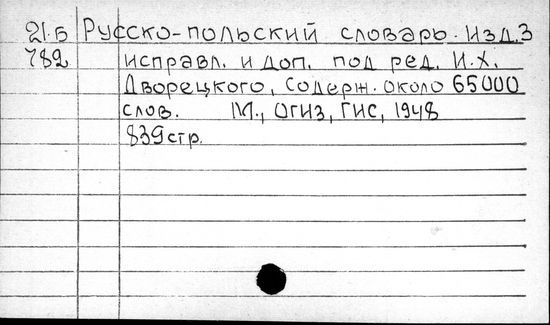 21.Б Русско-польский словарь. Изд.3
782 исправл. и доп. под ред. И.Х.
Дворецкого, Содерж. около 65000
слов. М., ОГИЗ, ГИС, 1948
839стр.